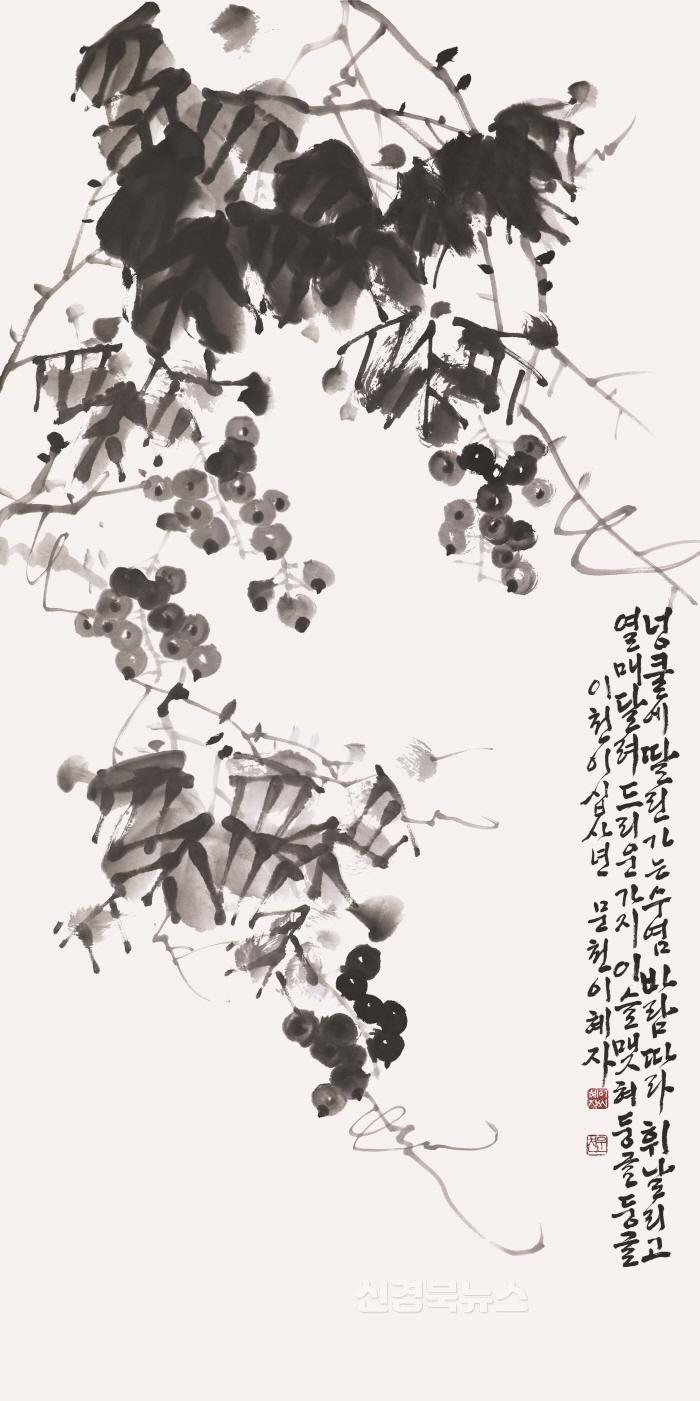 넝쿨에 딸린 가는 수염 바람 따라 휘날리고
열매 달려 드리운 가지 이슬 맺혀 둥글둥글
이천이십사년 문천 이혜자
신경북뉴스